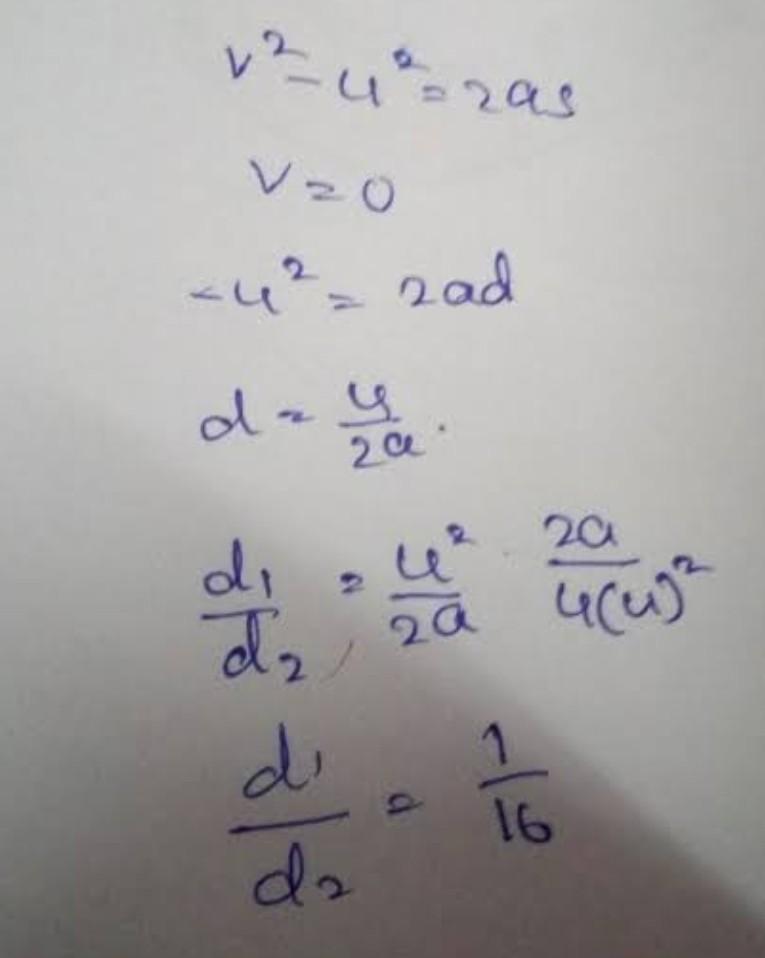 v² - u² = 2as
v = 0
-u² = 2ad
d = u/2a.
d₁/d₂ = u²/2a · 2a/4(u)²
d₁/d₂ = 1/16